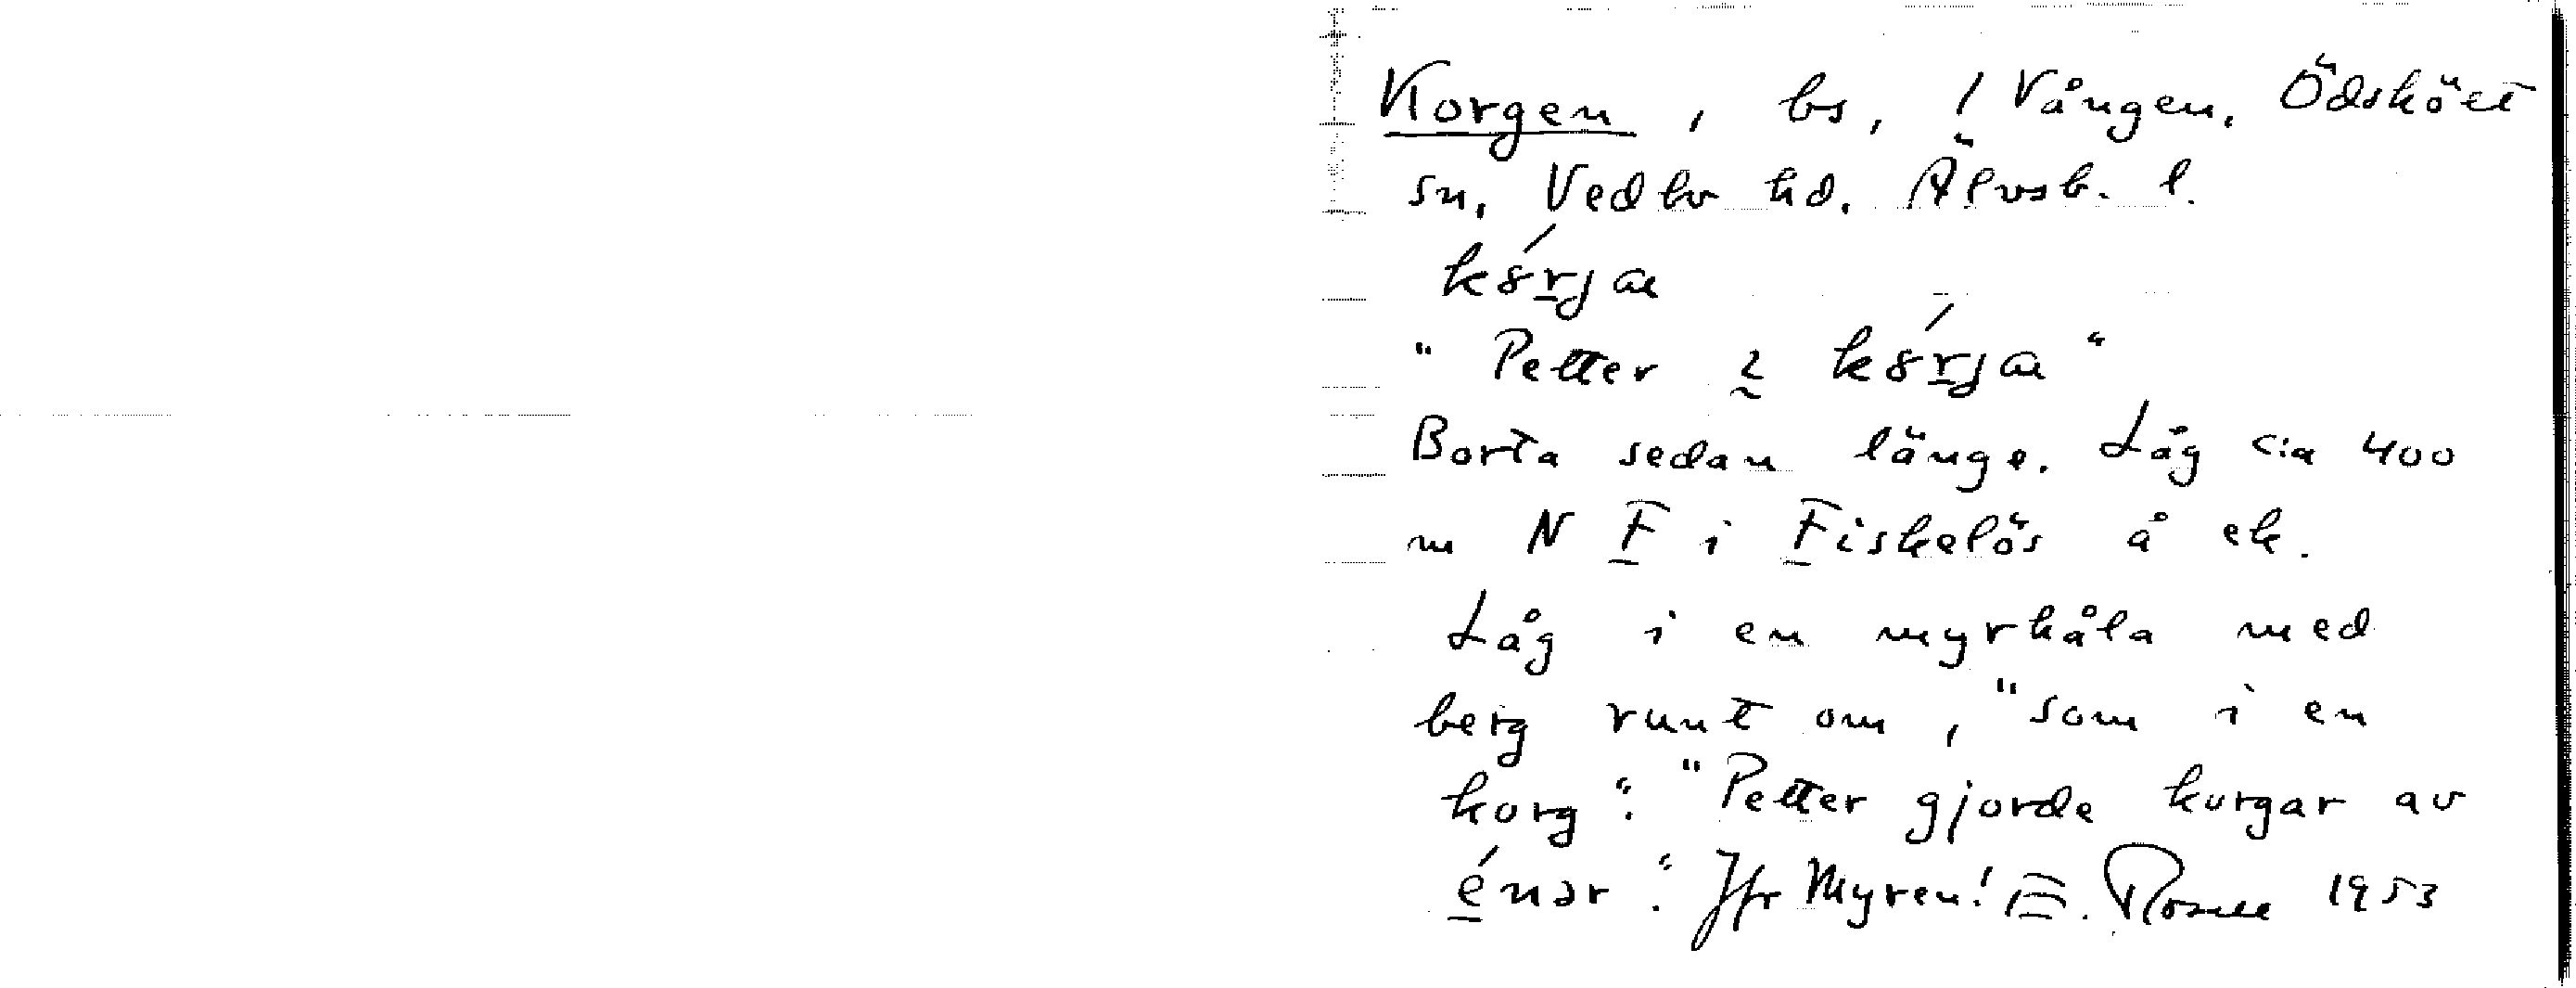 Korgen, bs, ! Vången, Ödsköet
sn, Vedbo hd. Älvsb. l.
kȣ́rja
"Petter i kȣ́rja"
Borta sedan länge. Låg c:a 400
m N F i Fiskelös å ek.
Låg i en myrhåla med
berg runt om, "som i en
korg". "Petter gjorde korgar av
énər". Jfr Myren! E. Rosell 1953